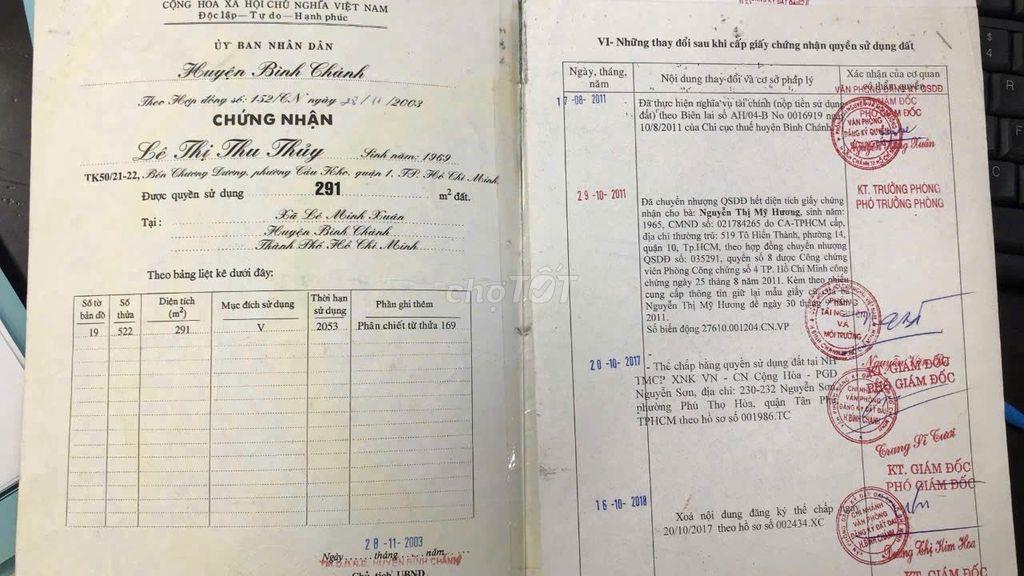 CỘNG HÒA XÃ HỘI CHỦ NGHĨA VIỆT NAM
Độc lập — Tự do — Hạnh phúc
ỦY BAN NHÂN DÂN
Huyện Bình Chánh
Theo Hợp đồng số: 152/CN ngày 28/11/2003
CHỨNG NHẬN
Lê Thị Thu Thủy Sinh năm: 1969
TK50/21-22, Bến Chương Dương, phường Cầu Kho, quận 1, TP. Hồ Chí Minh
Được quyền sử dụng 291 m² đất.
Tại: Xã Lê Minh Xuân
Huyện Bình Chánh
Thành Phố Hồ Chí Minh
Theo bảng liệt kê dưới đây:
Số tờ bản đồ Số thửa Diện tích (m²) Mục đích sử dụng Thời hạn sử dụng Phần ghi thêm
19 522 291 V 2053 Phân chiết từ thửa 169
28-11-2003
Ngày tháng năm
TM.U.B.N.D. HUYỆN BÌNH CHÁNH
Chủ tịch UBND
VI- Những thay đổi sau khi cấp giấy chứng nhận quyền sử dụng đất
Ngày, tháng, năm Nội dung thay đổi và cơ sở pháp lý Xác nhận của cơ quan có thẩm quyền
VĂN PHÒNG ĐĂNG KÝ QSDĐ
17-08-2011
Đã thực hiện nghĩa vụ tài chính (nộp tiền sử dụng
đất) theo Biên lai số AH/04-B No 0016919 ngày
10/8/2011 của Chi cục thuế huyện Bình Chánh
GIÁM ĐỐC
PHÓ GIÁM ĐỐC
VĂN PHÒNG
ĐĂNG KÝ QUYỀN
29-10-2011
Đã chuyển nhượng QSDĐ hết diện tích giấy chứng
nhận cho bà: Nguyễn Thị Mỹ Hương, sinh năm:
1965, CMND số: 021784265 do CA-TPHCM cấp,
địa chỉ thường trú: 519 Tô Hiến Thành, phường 14,
quận 10, Tp.HCM, theo hợp đồng chuyển nhượng
QSDĐ số: 035291, quyển số 8 được Công chứng
viên Phòng Công chứng số 4 TP. Hồ Chí Minh công
chứng ngày 25 tháng 8 năm 2011. Kèm theo nhiều
cung cấp thông tin giữ lại mẫu giấy
Nguyễn Thị Mỹ Hương để ngày 30 tháng
2011.
Số biến động 27610.001204.CN.VP
KT. TRƯỞNG PHÒNG
PHÓ TRƯỞNG PHÒNG
PHÒNG
TÀI NGUYÊN
VÀ
MÔI TRƯỜNG
20-10-2017
- Thế chấp bằng quyền sử dụng đất tại NH
TMCP XNK VN - CN Cộng Hòa - PGD
Nguyễn Sơn, địa chỉ: 230-232 Nguyễn Sơn,
phường Phú Thọ Hòa, quận Tân Phú,
TPHCM theo hồ sơ số 001986.TC
KT. GIÁM ĐỐC
PHÓ GIÁM ĐỐC
CHI NHÁNH
VĂN PHÒNG
ĐĂNG KÝ ĐẤT ĐAI
H.BÌNH CHÁNH
Trang Sĩ Tươi
16-10-2018
Xoá nội dung đăng ký thế chấp ngày
20/10/2017 theo hồ sơ số 002434.XC
KT. GIÁM ĐỐC
PHÓ GIÁM ĐỐC
CHI NHÁNH
VĂN PHÒNG
ĐĂNG KÝ ĐẤT ĐAI
H.BÌNH CHÁNH
Dương Thị Kim Hoa
KT. GIÁM ĐỐC
chợTỐT